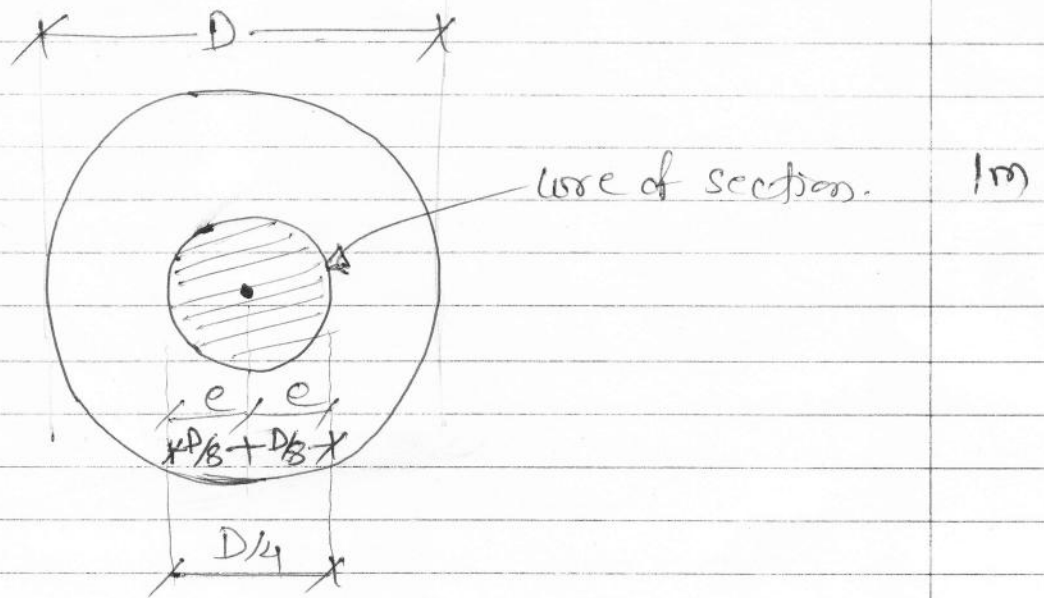 D
core of section.
1m
e e
D/8 D/8
D/4